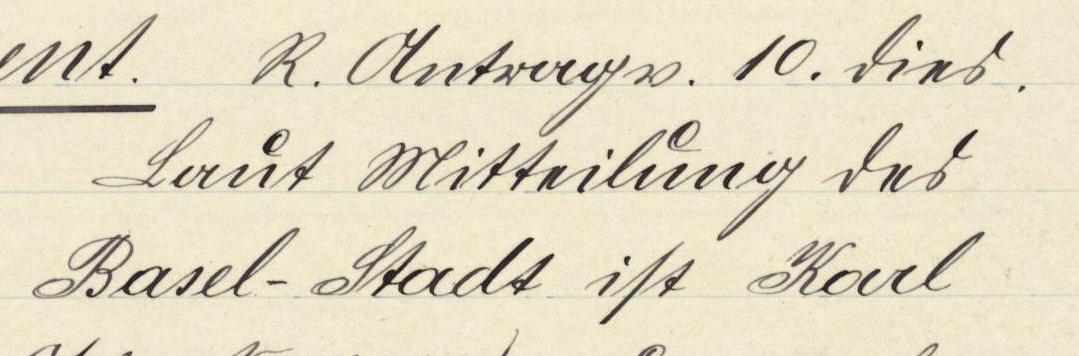 ent. R. Antrag v. 10. dies.
Laut Mitteilung des
Basel-Stadt ist Karl